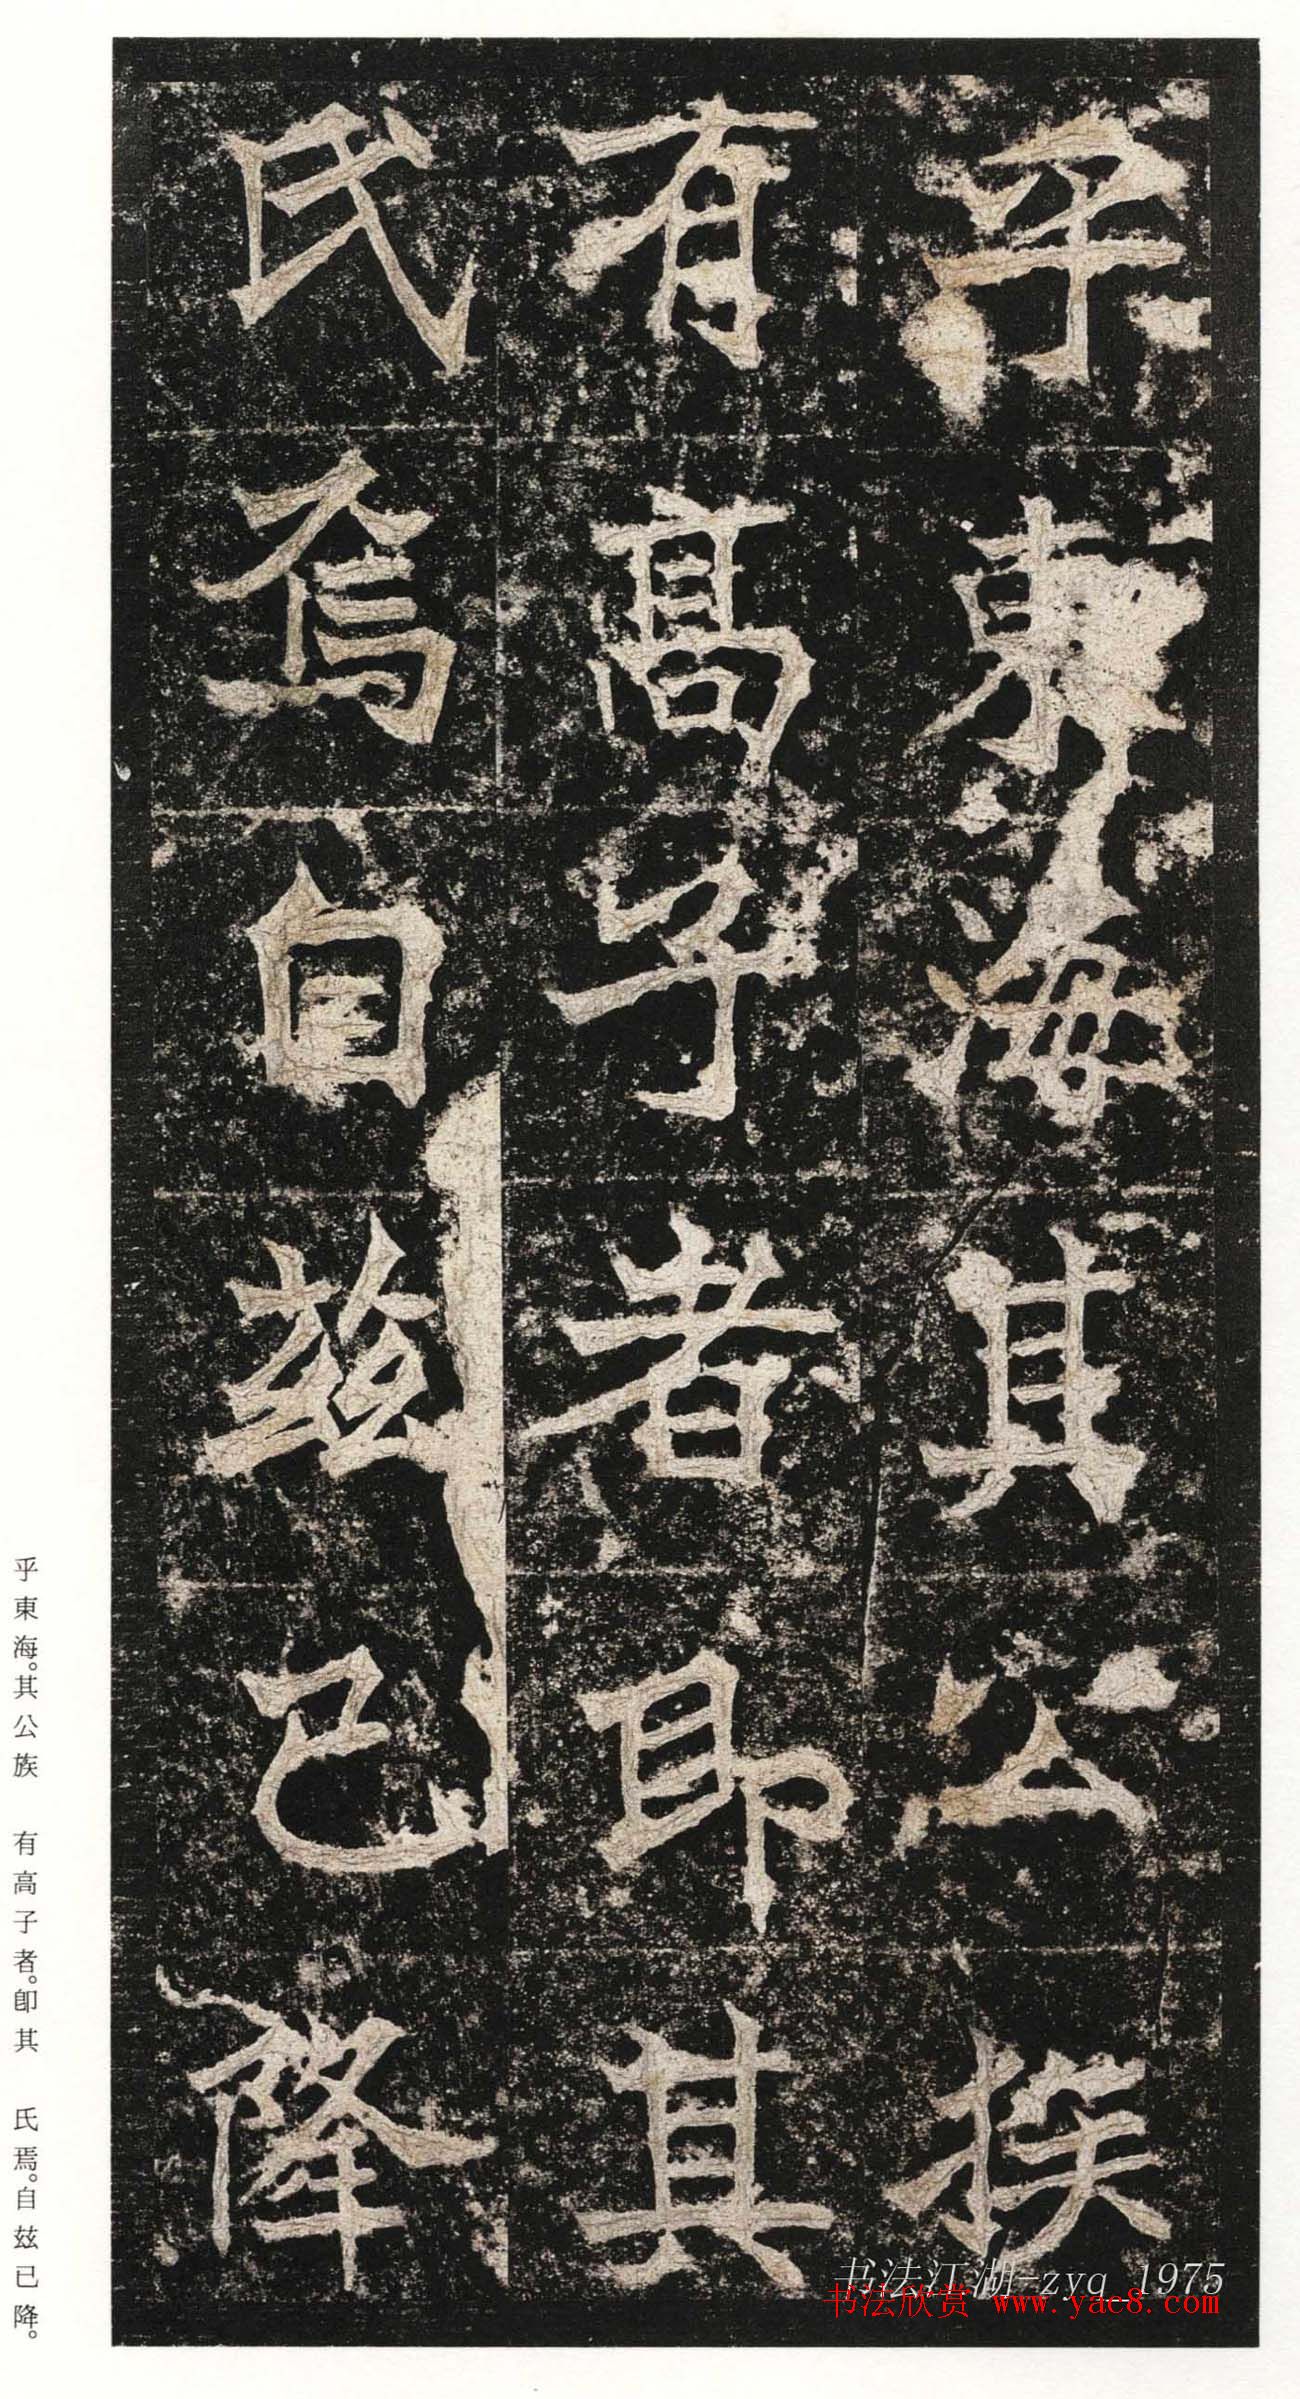 乎東海其公族
有高子者即其
氏焉自茲已降
乎東海。其公族　有高子者。即其　氏焉。自茲已降。
书法江湖-zyq_1975
书法欣赏 www.yac8.com